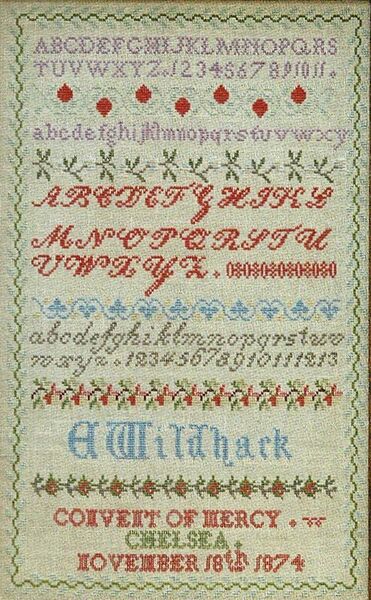 ABCDEFGHIJKLMNOPQRS
TUVWXYZ.1234567891011.
abcdefghijklmnopqrstuvwxy
ABCDEFGHIKL
MNOPQRSTU
VWXYZ.
abcdefghiklmnopqrstuv
wxyz.12345678910111213
A Wildhack
CONVENT OF MERCY.
CHELSEA.
NOVEMBER 18th 1874